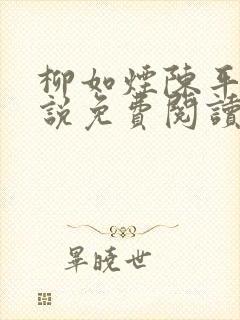 柳如煙陳平
説免費閱讀
畢曉世